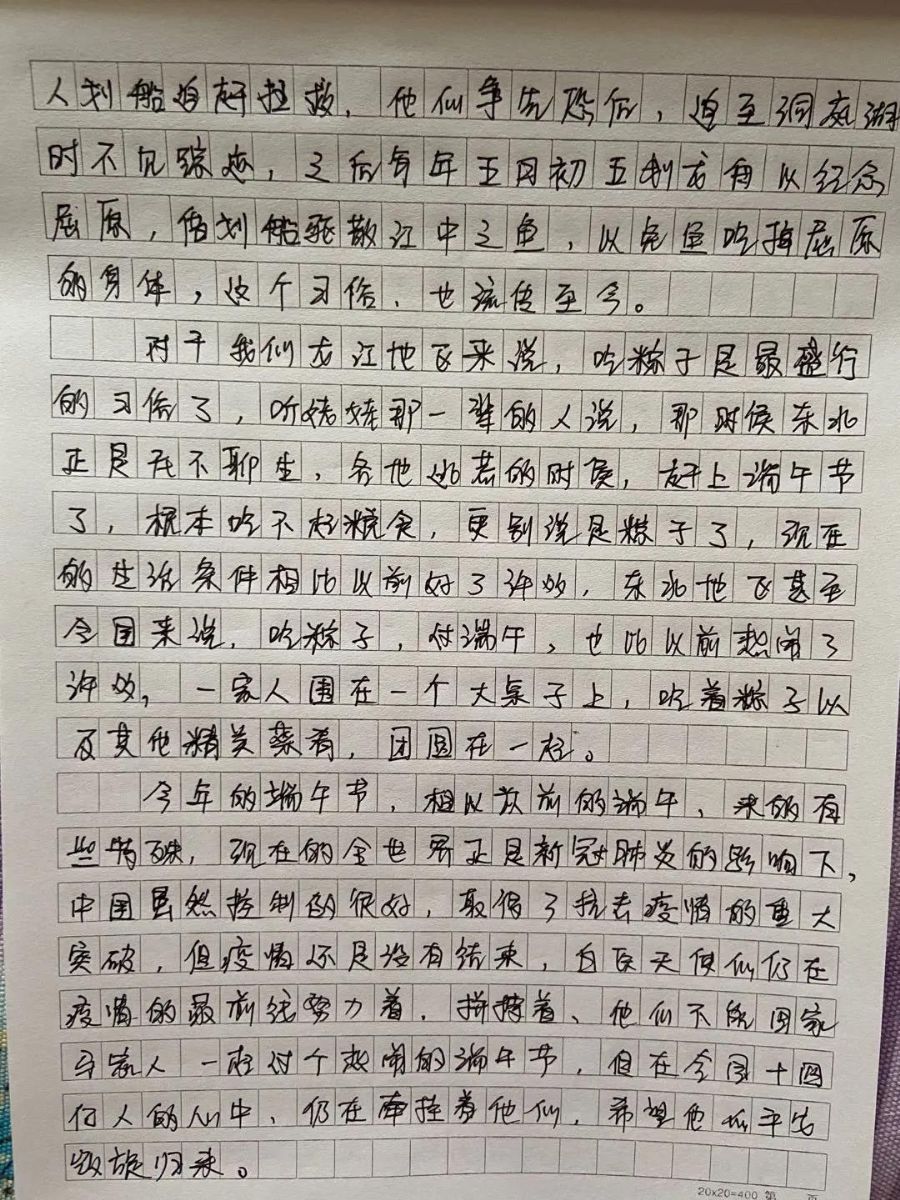 人划船追赶拯救，他们争先恐后，追至洞庭湖
时不见踪迹，之后每年五月初五划龙舟以纪念
屈原，借划船驱散江中之鱼，以免鱼吃掉屈原
的身体，这个习俗、也流传至今。
对于我们龙江地区来说，吃粽子是最盛行
的习俗了，听姥姥那一辈的人说，那时候东北
正是民不聊生，各地逃荒的时候，赶上端午节
了，根本吃不起粮食，更别说是粽子了，现在
的生活条件相比以前好了许多，东北地区甚至
全国来说，吃粽子，过端午，也比以前热闹了
许多，一家人围在一个大桌子上，吃着粽子以
及其他精美菜肴，团圆在一起。
今年的端午节，相以前的端午，来的有
些特殊，现在的全世界正是新冠肺炎的影响下，
中国虽然控制的很好，取得了抗击疫情的重大
突破，但疫情还是没有结束，白衣天使们仍在
疫情的最前线努力着，拼搏着、他们不能回家
与家人一起过个热闹的端午节，但在全国十四
亿人的心中、仍在牵挂着他们，希望他们平安
凯旋归来。
20×20=400 第 页